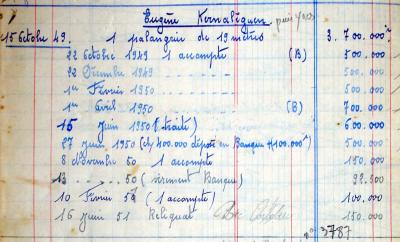 Eugène Kernaléguen
15 Octobre 49. 1 palangrier de 19 mètres 3.700.000
22 Octobre 1949 1 accompte (B) 500.000
22 Décembre 1949 500.000
1er Février 1950 500.000
1er Avril 1950 (B) 700.000
15 Juin 1950 (1 traité) 600.000
27 Juin 1950 (ch/400.000 déposé en Banque + 100.000) 500.000
8 décembre 50 1 accompte 150.000
13 50 (virement Banque) 99.900
10 Février 51 (1 accompte) 100.000
16 Juin 51 Reliquat 150.000
3787